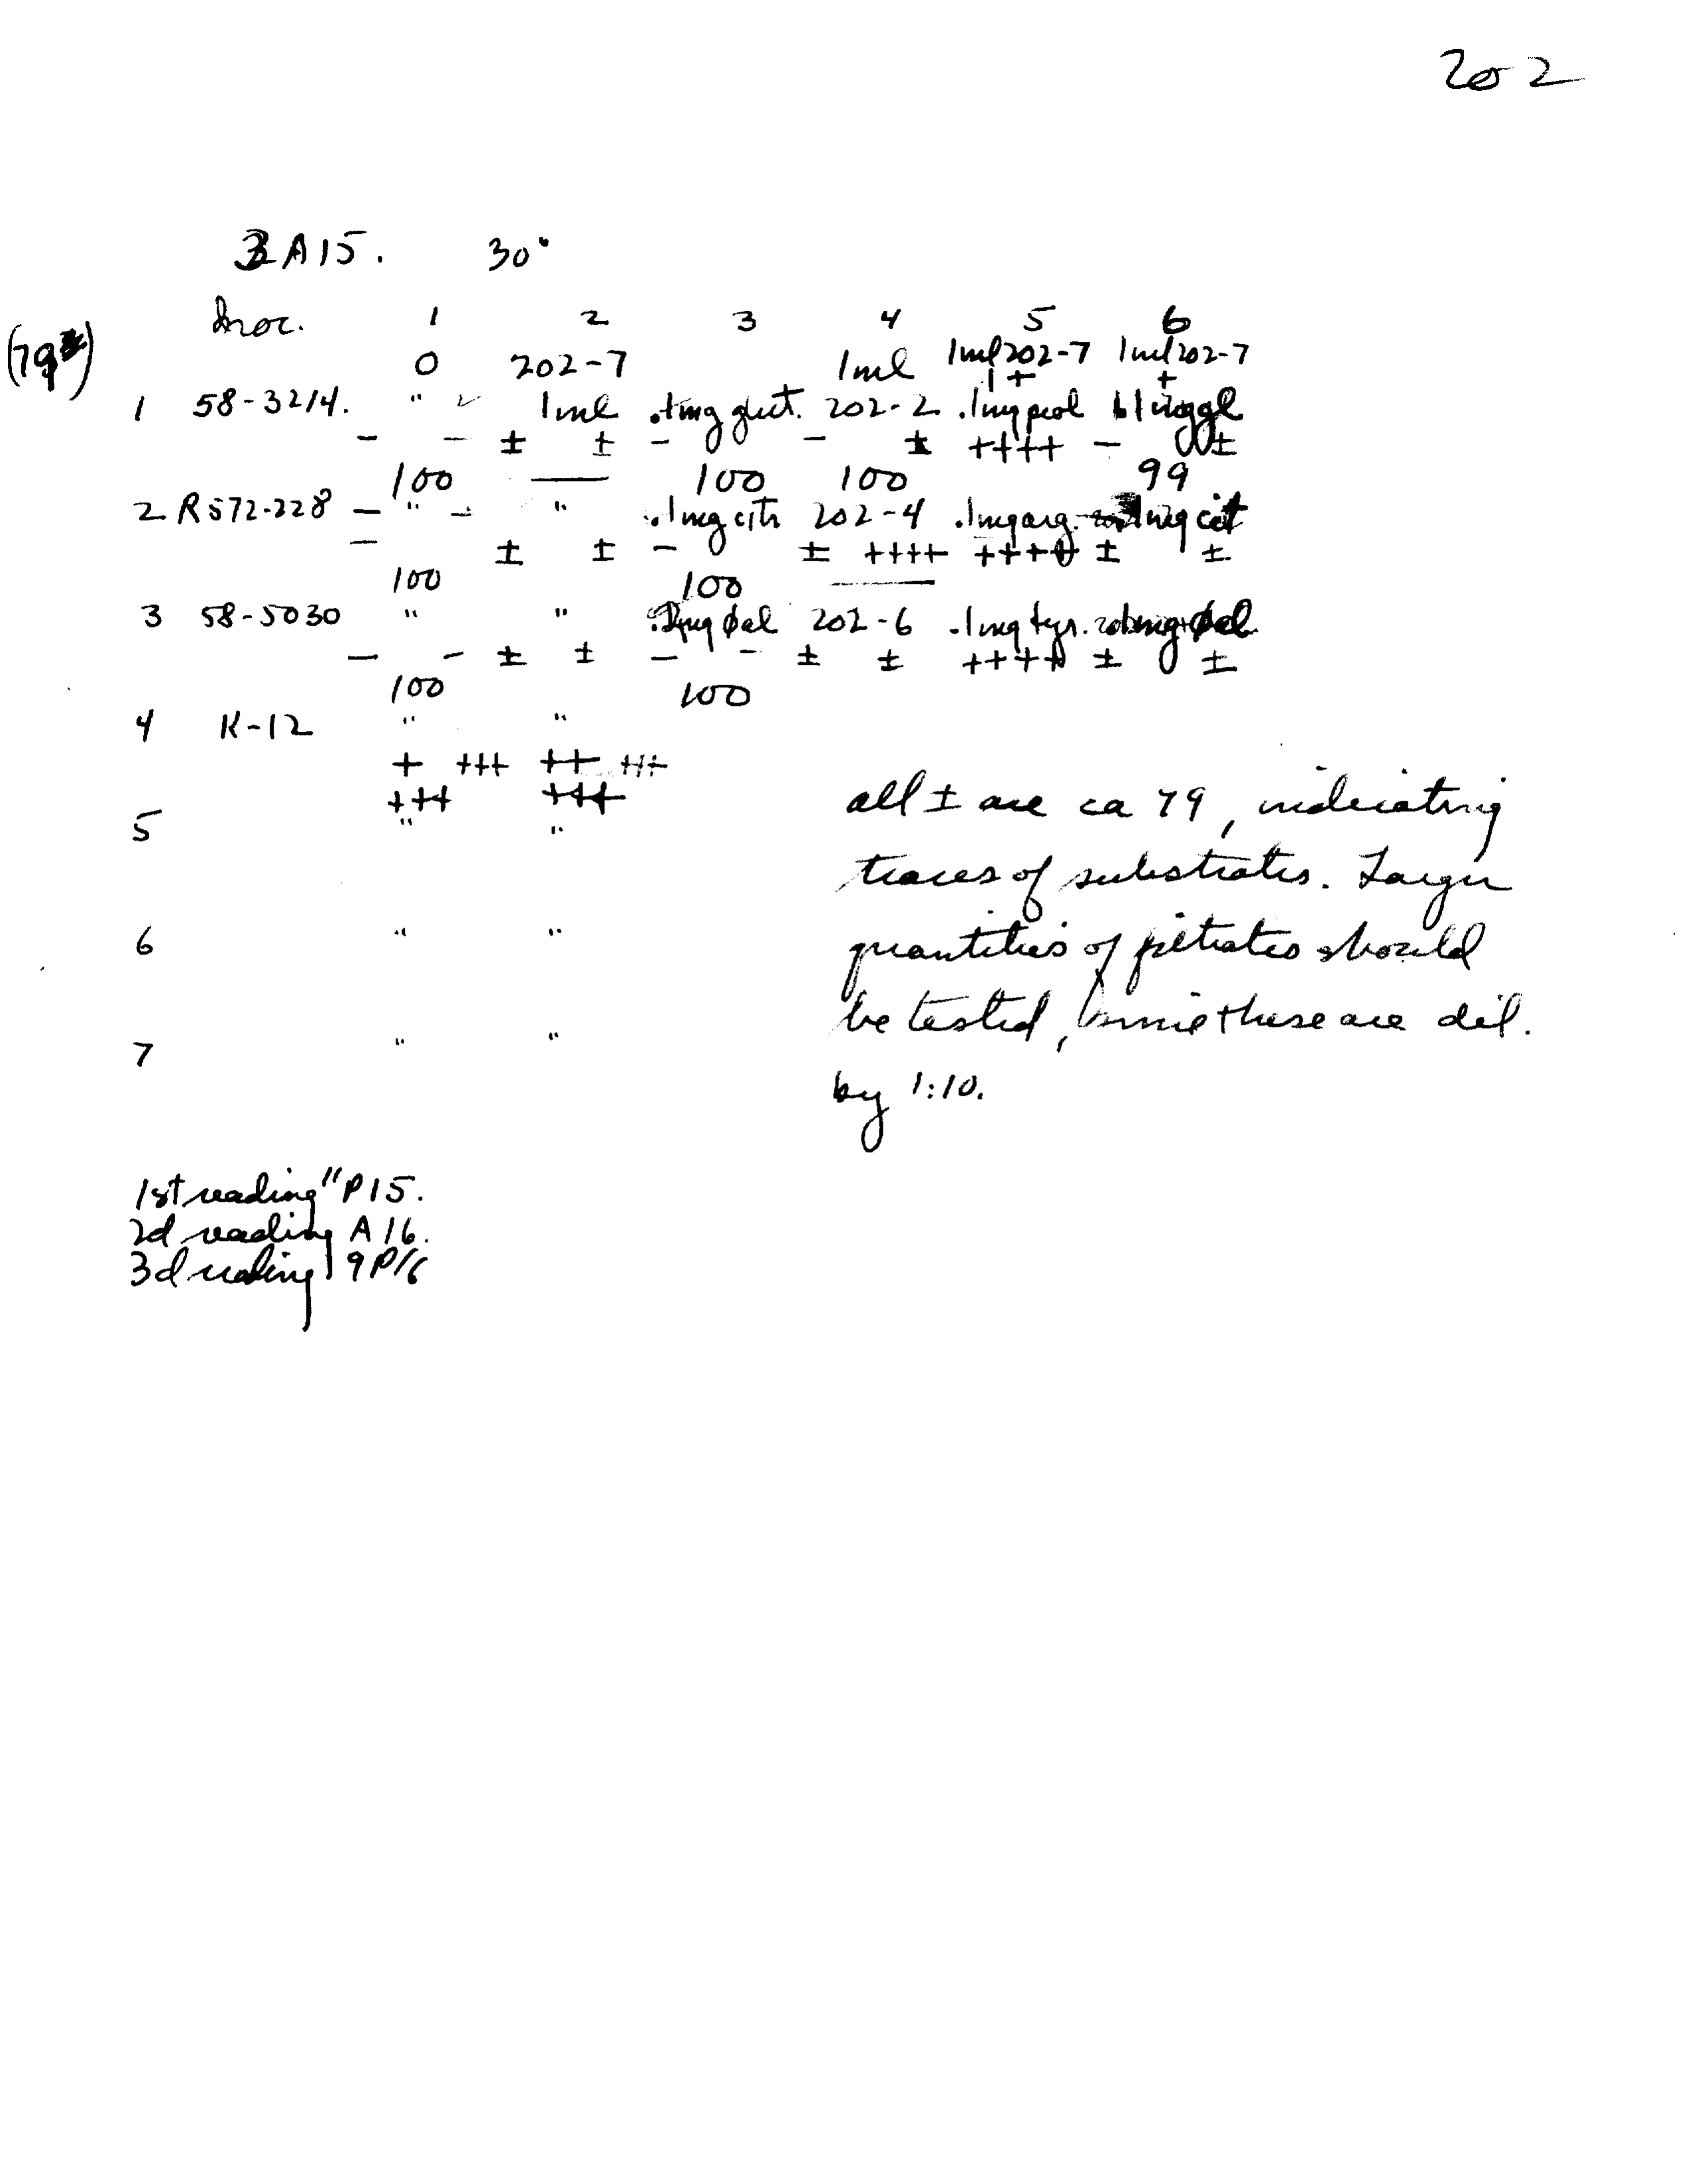 202
3A15. 30°
Inoc. 1 2 3 4 5 6
0 202-7 1ml 1ml 202-7 1ml 202-7
+ +
1 58-3214. " 1ml .1mg glut. 202-2 .1mg prol .1mg gl
- - ± ± - - ± ++++ - ±
100 — 100 100 99
2 R572-228 - " - " .1mg citr 202-4 .1mg arg. .1mg cit
- ± ± - ± ++++ ++++ ± ±
100 100 —
3 58-5030 " " φal 202-6 .1mg tyr. .1mg φal
- - ± ± - - ± ± ++++ ± ±
100 100
4 K-12 " "
+ +++ ++ +++
+++ +++
5 " "
6 " "
7 " "
all ± are ca 79, indicating
traces of substrates. Larger
quantities of filtrates should
be tested, since these are dil.
by 1:10.
1st reading "P15.
2d reading A16.
3d reading 9P16